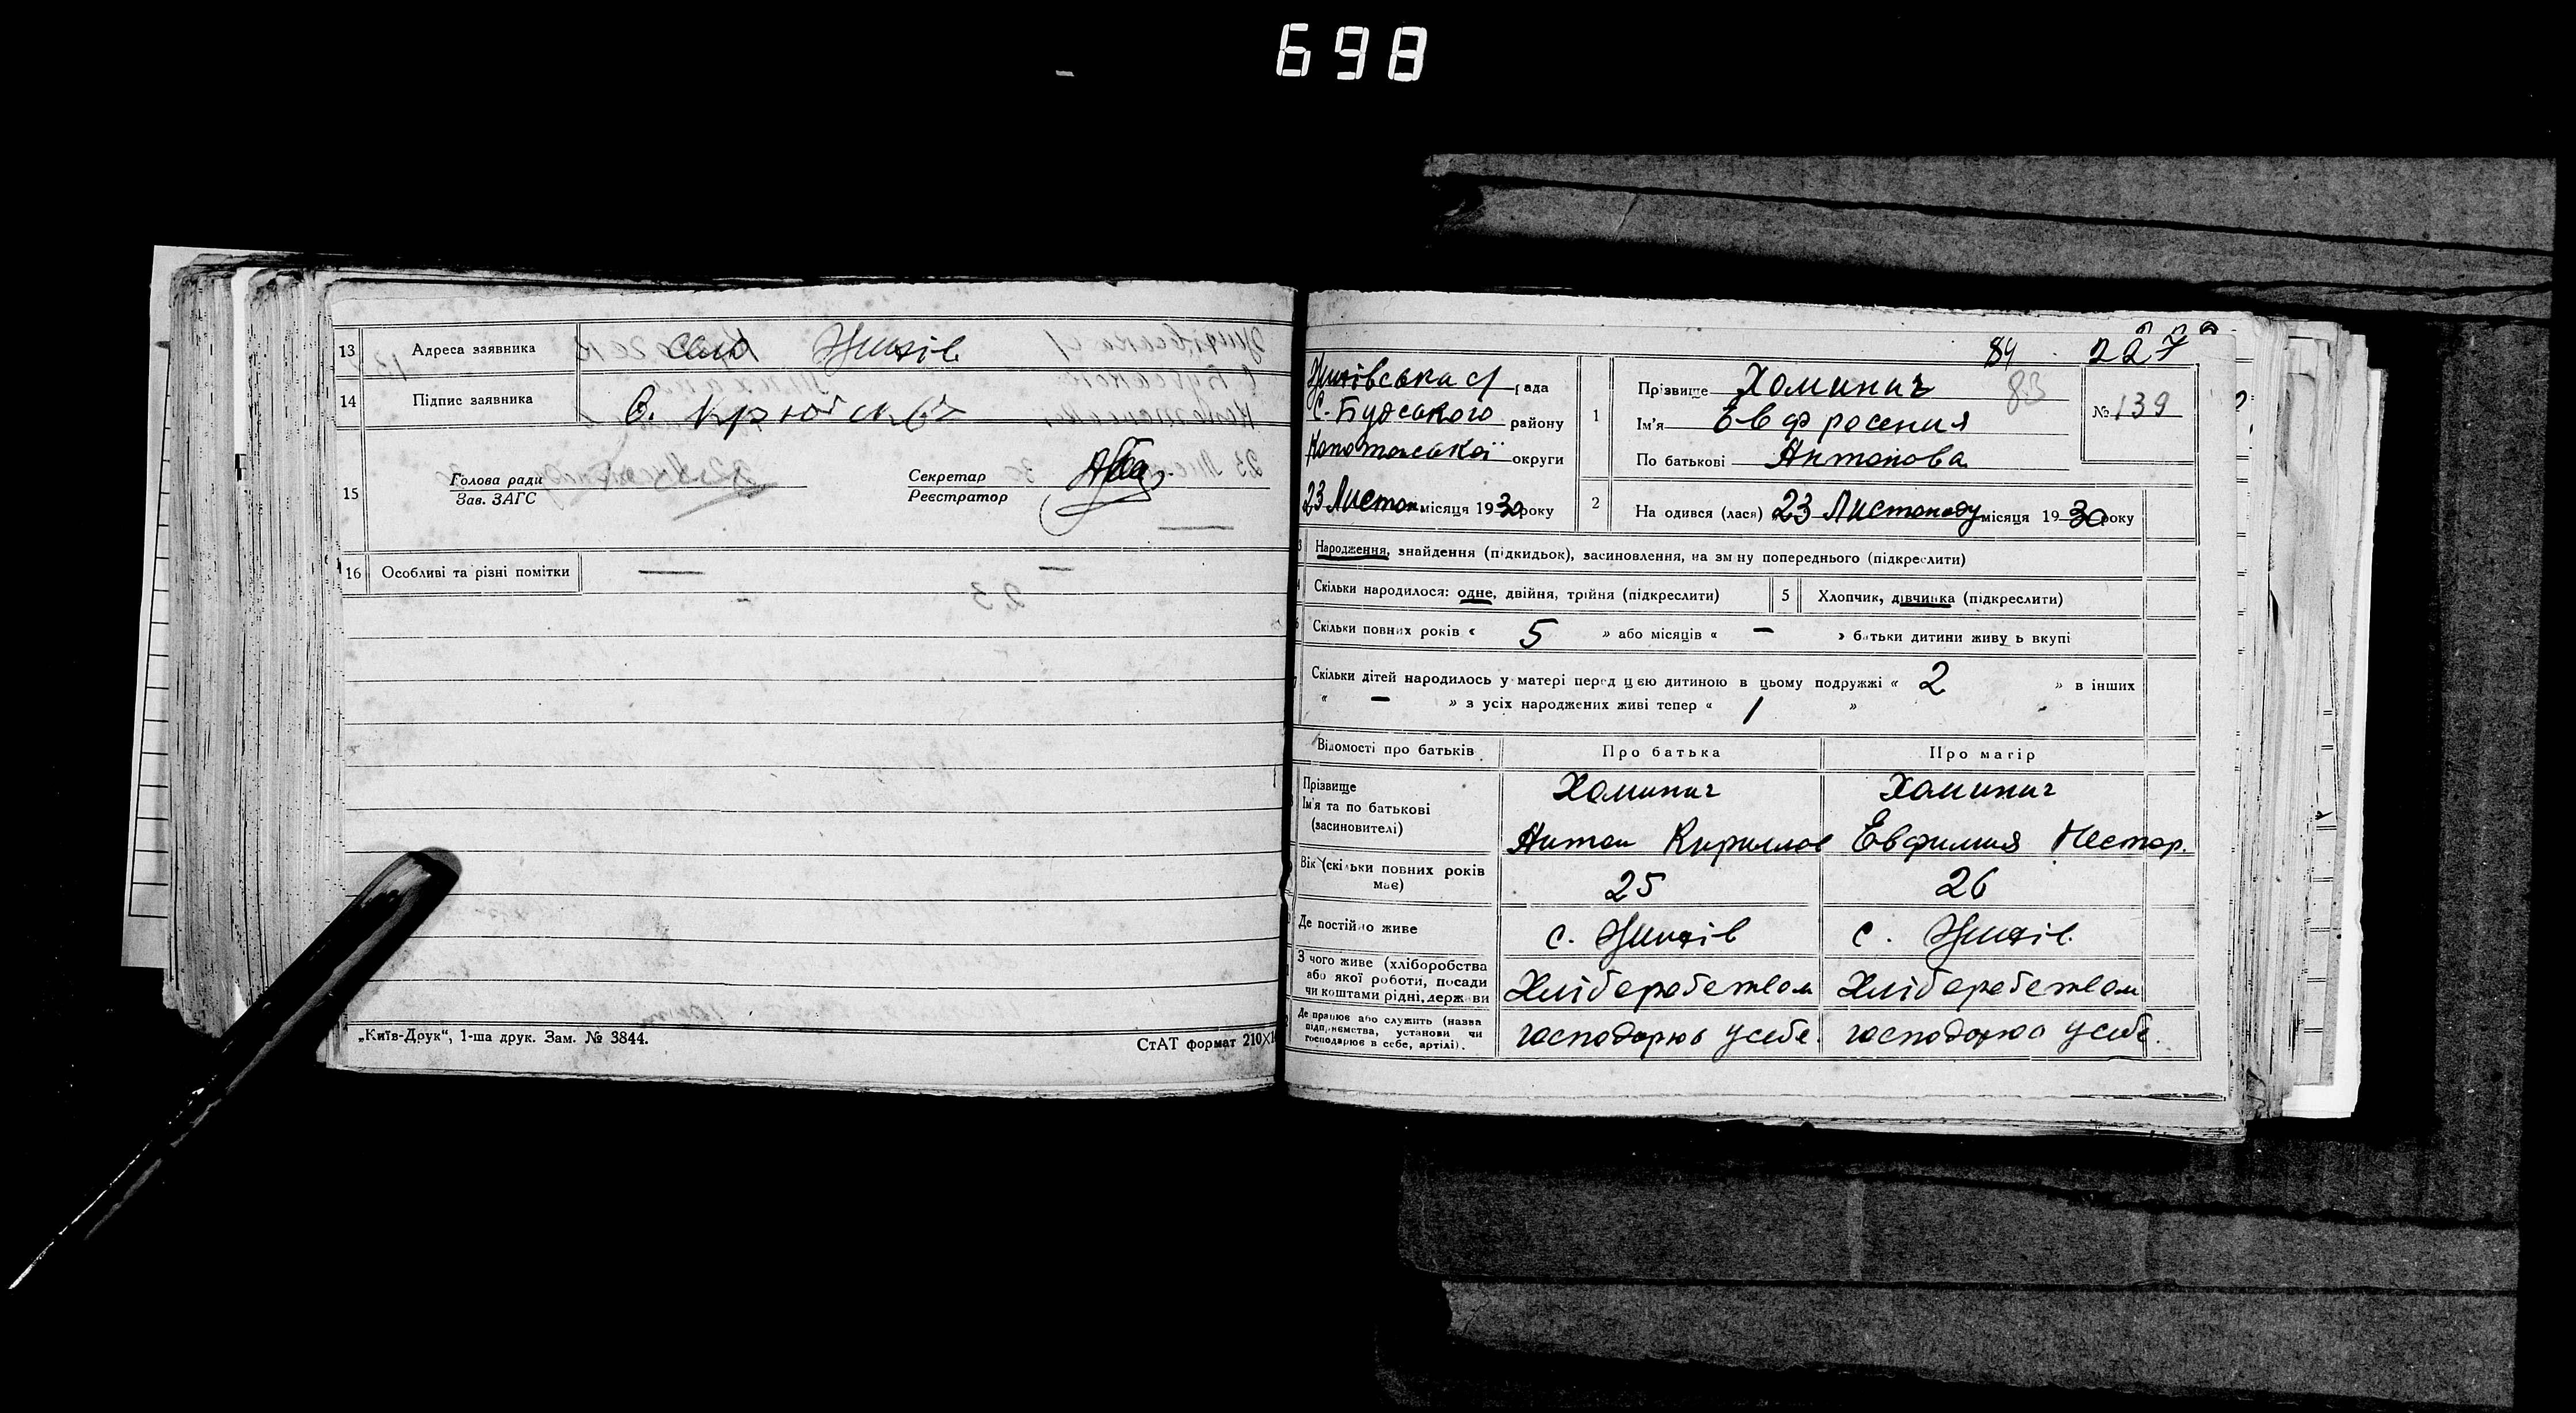 698
13 Адреса заявника село Жихів
14 Підпис заявника
15 Голова ради
Зав. ЗАГС
Секретар
Реєстратор
16 Особливі та різні помітки — —
„Київ-Друк“, 1-ша друк. Зам. № 3844.
СтАТ формат 210×1
84 227
83
Жихівська с/ рада
С.-Будського району
Конотопської округи
23 Листоп місяця 1930 року
1 Прізвище Хоминич
Ім'я Евфросения
По батькові Антонова
№ 139
2 Народився (лася) 23 Листопаду місяця 1930 року
3 Народження, знайдення (підкидьок), засиновлення, на зміну попереднього (підкреслити)
4 Скільки народилося: одне, двійня, трійня (підкреслити)
5 Хлопчик, дівчинка (підкреслити)
6 Скільки повних років « 5 » або місяців « — » батьки дитини живуть вкупі
7 Скільки дітей народилось у матері перед цією дитиною в цьому подружжі « 2 » в інших
« — » з усіх народжених живі тепер « 1 »
Відомості про батьків Про батька Про матір
Прізвище Хоминич Хоминич
Ім'я та по батькові
(засиновителі) Антон Кириллов Евфимия Нестор.
Вік (скільки повних років має) 25 26
Де постійно живе с. Жихів с. Жихів.
З чого живе (хліборобства
або якої роботи, посади
чи коштами рідні, держави Хліборобством Хліборобством
Де працює або служить (назва
підприємства, установи чи
господарює в себе, артілі). господарює у себе. господарює у себе.